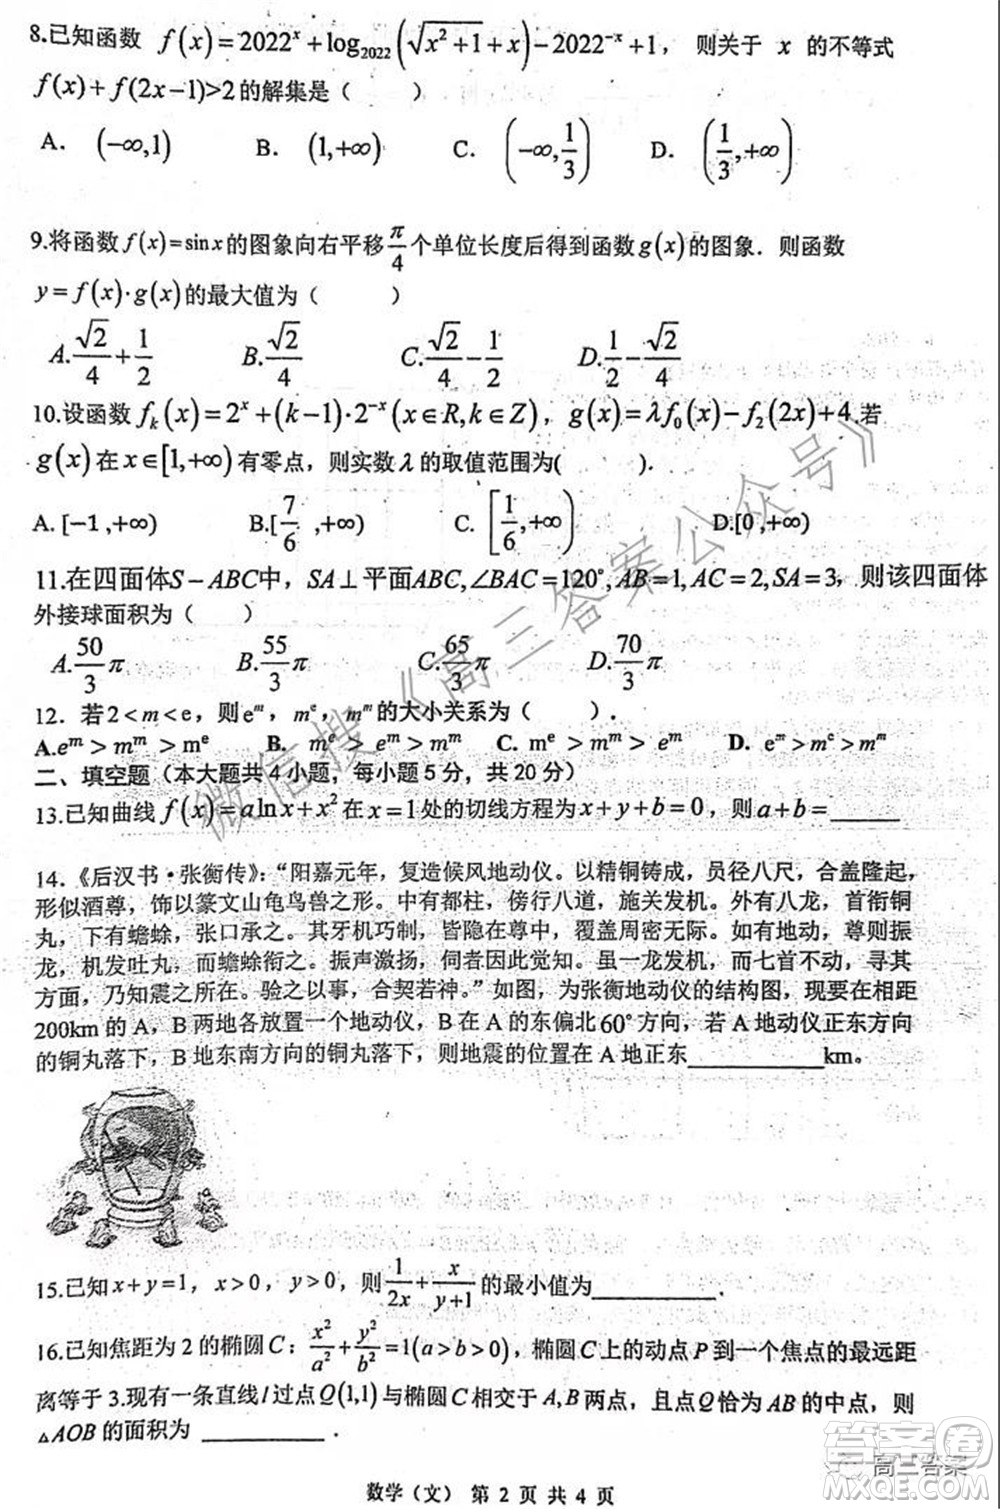 8.已知函数 f(x)=2022^x+log_2022(√(x²+1)+x)−2022^−x+1， 则关于 x 的不等式
f(x)+f(2x−1)>2的解集是（ ）
A. (−∞,1) B. (1,+∞) C. (−∞,1/3) D. (1/3,+∞)
9.将函数f(x)=sinx的图象向右平移π/4个单位长度后得到函数g(x)的图象．则函数
y=f(x)·g(x)的最大值为（ ）
A.√2/4+1/2 B.√2/4 C.√2/4−1/2 D.1/2−√2/4
10.设函数f_k(x)=2^x+(k−1)·2^−x(x∈R,k∈Z)，g(x)=λf_0(x)−f_2(2x)+4.若
g(x)在x∈[1,+∞)有零点，则实数λ的取值范围为( ).
A. [−1,+∞) B.[7/6 ,+∞) C. [1/6,+∞) D.[0,+∞)
11.在四面体S−ABC中，SA⊥平面ABC,∠BAC=120°,AB=1,AC=2,SA=3，则该四面体
外接球面积为（ ）
A.50/3π B.55/3π C.65/3π D.70/3π
12．若2<m<e，则e^m，m^e，m^m的大小关系为（ ）.
A.e^m>m^m>m^e B. m^e>e^m>m^m C. m^e>m^m>e^m D. e^m>m^e>m^m
二、填空题（本大题共4小题，每小题5分，共20分）
13.已知曲线f(x)=alnx+x²在x=1处的切线方程为x+y+b=0，则a+b=_____
14.《后汉书·张衡传》：“阳嘉元年，复造候风地动仪。以精铜铸成，员径八尺，合盖隆起，
形似酒尊，饰以篆文山龟鸟兽之形。中有都柱，傍行八道，施关发机。外有八龙，首衔铜
丸，下有蟾蜍，张口承之。其牙机巧制，皆隐在尊中，覆盖周密无际。如有地动，尊则振
龙，机发吐丸，而蟾蜍衔之。振声激扬，伺者因此觉知。虽一龙发机，而七首不动，寻其
方面，乃知震之所在。验之以事，合契若神。”如图，为张衡地动仪的结构图，现要在相距
200km的A，B两地各放置一个地动仪，B在A的东偏北60°方向，若A地动仪正东方向
的铜丸落下，B地东南方向的铜丸落下，则地震的位置在A地正东__________km。
15.已知x+y=1，x>0，y>0，则1/2x+x/(y+1)的最小值为__________.
16.已知焦距为2的椭圆C：x²/a²+y²/b²=1(a>b>0)，椭圆C上的动点P到一个焦点的最远距
离等于3.现有一条直线l过点Q(1,1)与椭圆C相交于A,B两点，且点Q恰为AB的中点，则
△AOB的面积为 __________.
数学（文） 第 2 页 共 4 页
微信搜《高三答案公众号》
高三答案
答案圈
MXQE.COM